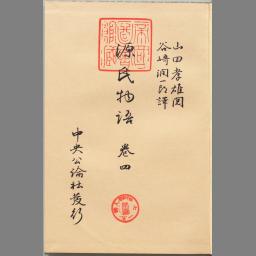 山田孝雄閲
谷崎潤一郎譯
源氏物語 巻四
中央公論社發行